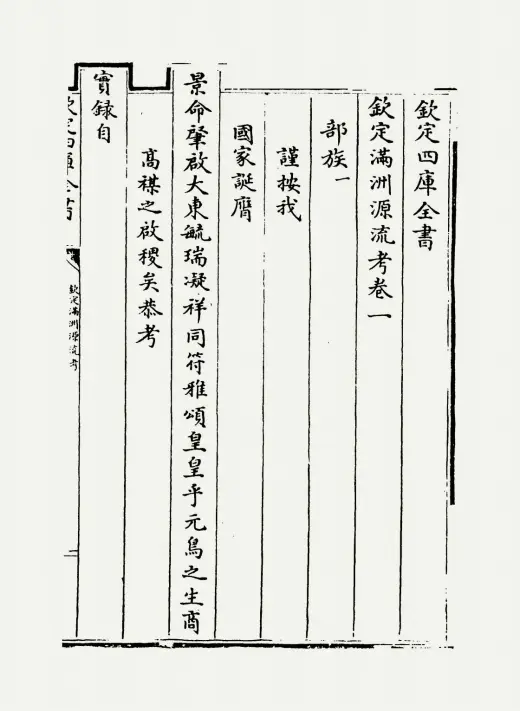 欽定四庫全書
欽定滿洲源流考卷一
部族一
謹按我
國家誕膺
景命肇啟大東毓瑞凝祥同符雅頌皇皇乎元鳥之生商
高禖之啟稷矣恭考
實録自
欽定四庫全書
欽定滿洲源流考